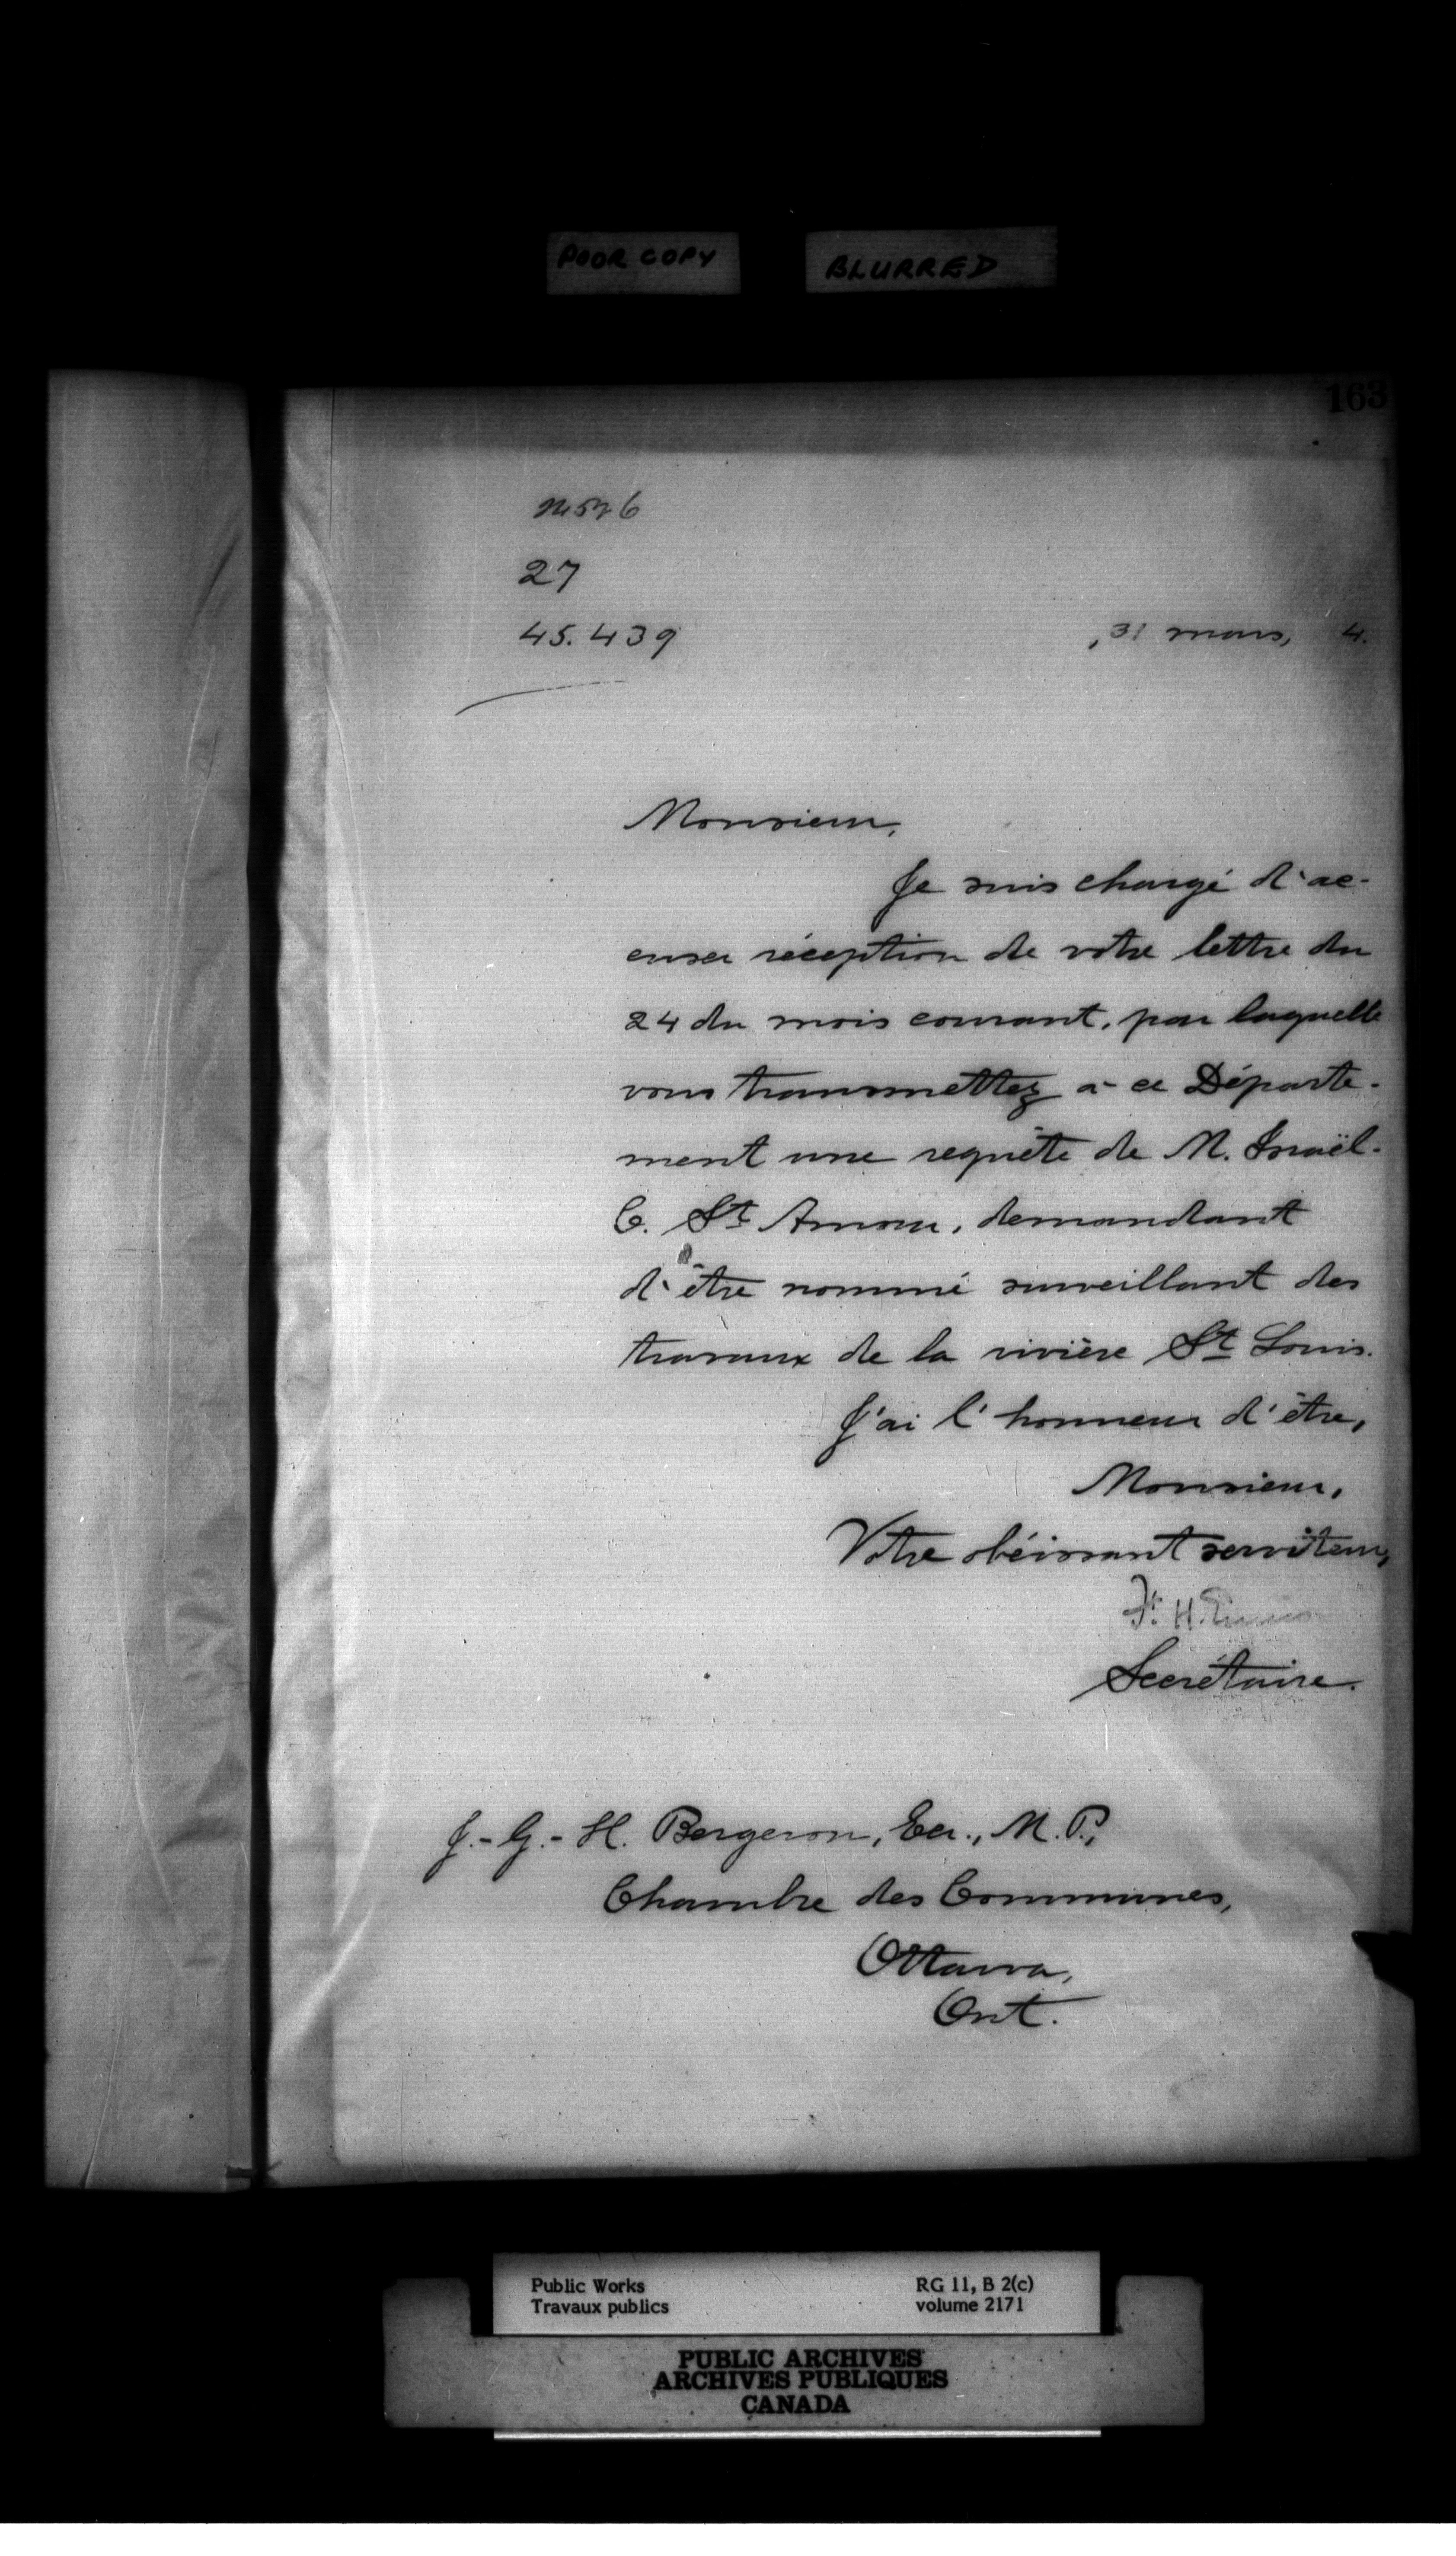 POOR COPY BLURRED
163
27
45.439
, 31 mars, 4.
Monsieur,
Je suis chargé d'ac-
cuser réception de votre lettre du
24 du mois courant, par laquelle
vous transmettez à ce Départe-
ment une requête de M. Israël-
C. St Amour, demandant
d'être nommé surveillant des
travaux de la rivière St Louis.
J'ai l'honneur d'être,
Monsieur,
Votre obéissant serviteur,
Secrétaire.
J.-G.-H. Bergeron, Ecr., M.P.,
Chambre des Communes,
Ottawa,
Ont.
Public Works RG 11, B 2(c)
Travaux publics volume 2171
PUBLIC ARCHIVES
ARCHIVES PUBLIQUES
CANADA